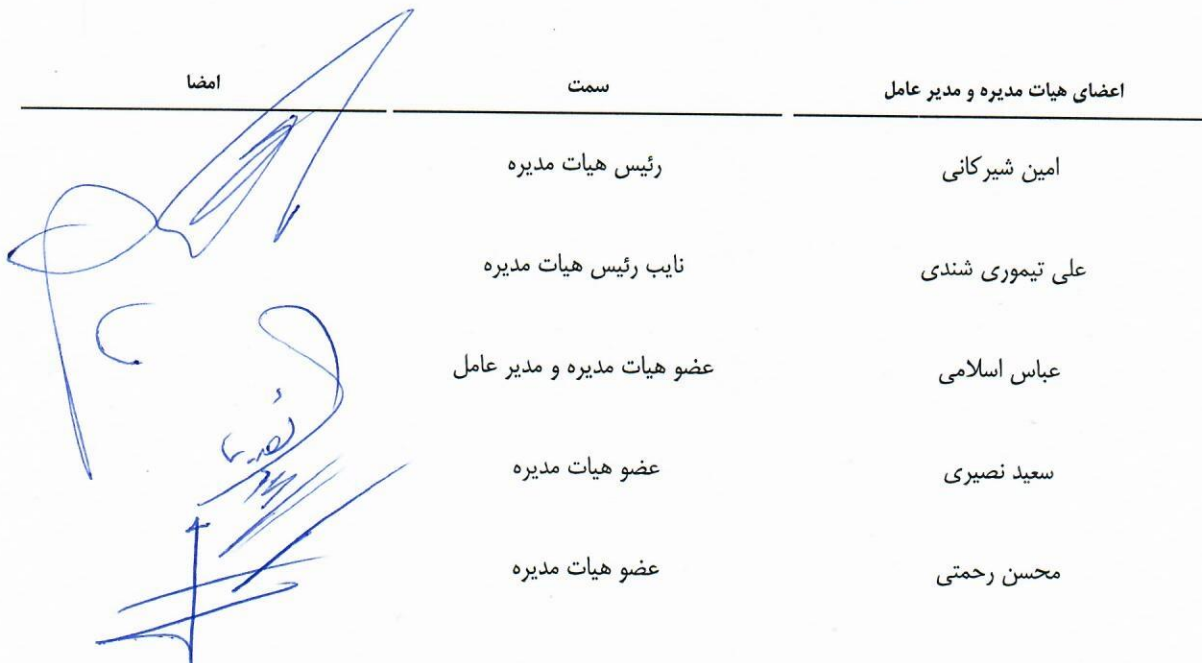 اعضای هیات مدیره و مدیر عامل سمت امضا
امین شیرکانی رئیس هیات مدیره
علی تیموری شندی نایب رئیس هیات مدیره
عباس اسلامی عضو هیات مدیره و مدیر عامل
سعید نصیری عضو هیات مدیره
محسن رحمتی عضو هیات مدیره